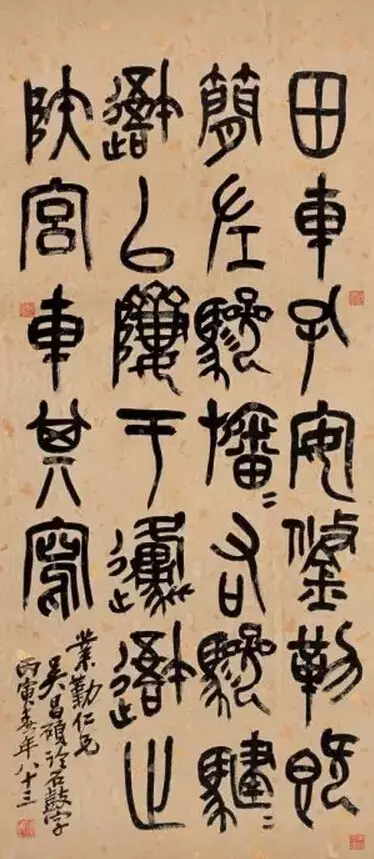 田車孔安鋚勒既
簡左驂旛〻右驂騝〻
吾以隮于邍吾止
陕宮車其寫
業勤仁兄
吴昌碩臨石鼓字
丙寅春年八十三